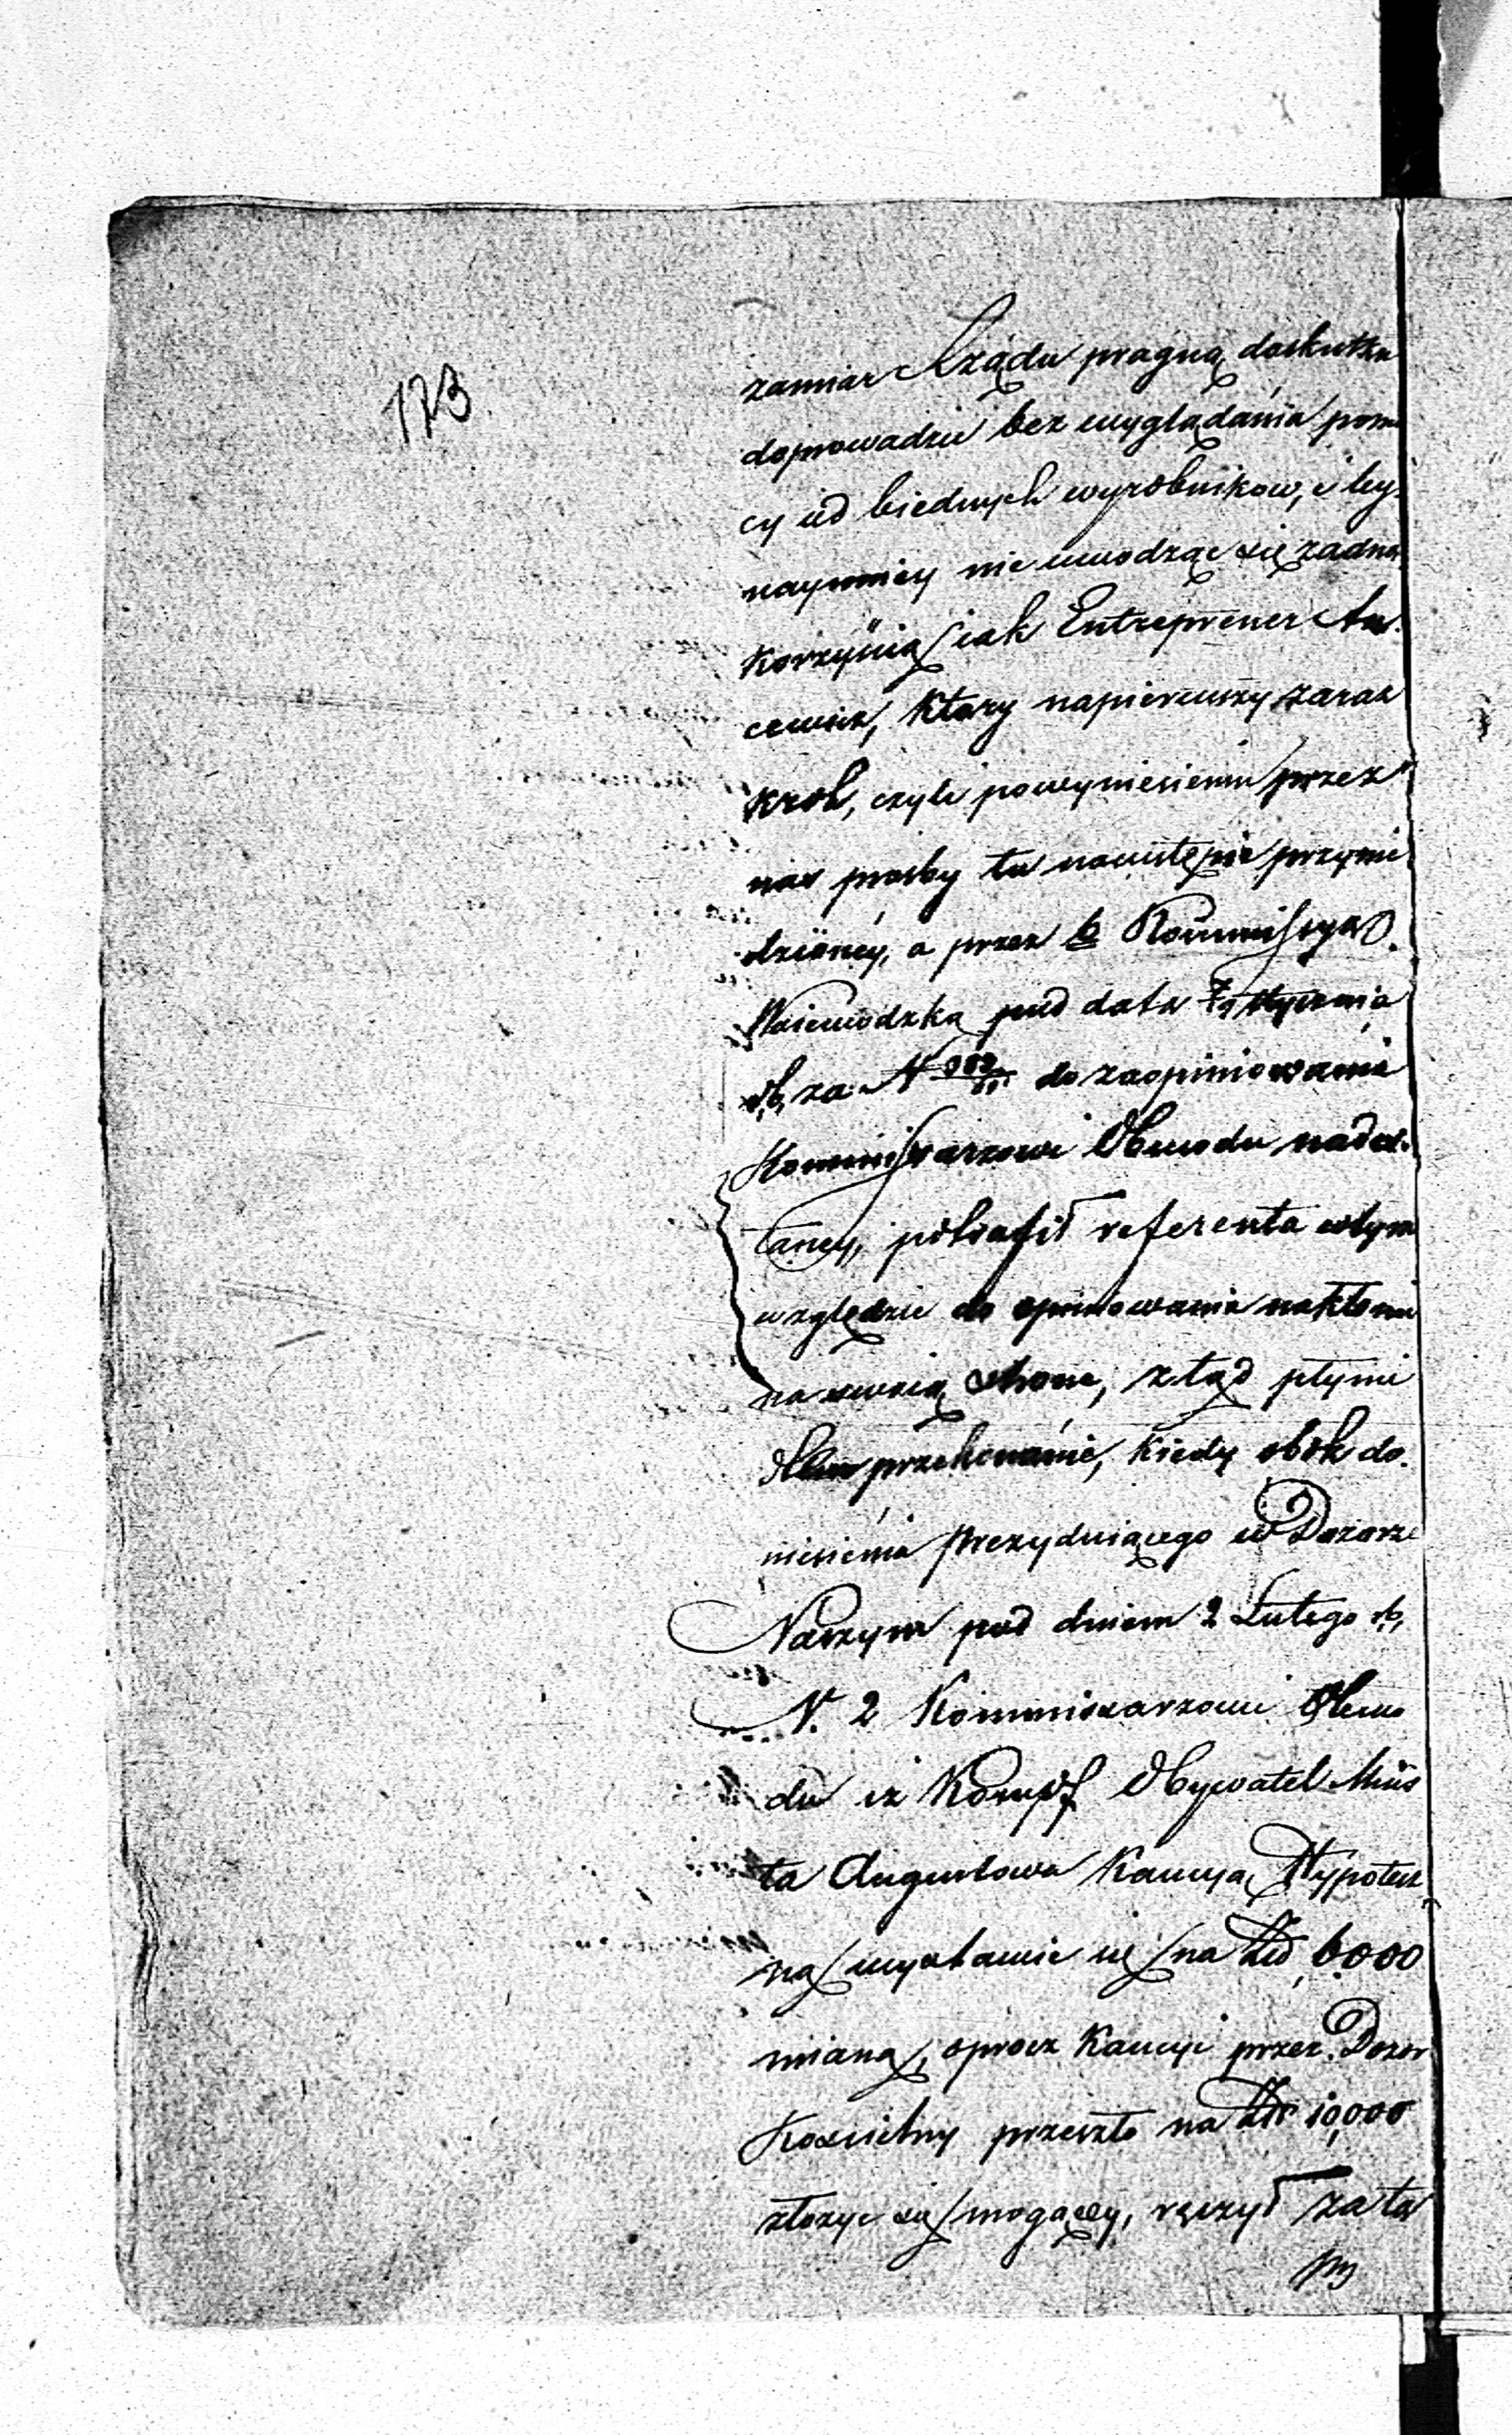 173
zamiar Rządu pragną doskutku
doprowadzić bez wyglądania pomo
cy od biednych wyrobnikow, i by
naymniey nie uwodząc się żadną
Korzyścią jak Entreprener An
cewicz, Ktory napierwszy zaraz
Krok, czyli powyniesieniu przez
nas prosby tu nawstępie przywie
dzioney, a przez Kommissyą
Woiewodzką pod datą 7/19 Stycznia
rb, za N do zaopiniowania
Kommissarzowi Obwodu nade
słaney, potrafił referenta wtym
względzie do opiniowania nakłonić
na swoią stronę, ztąd płynie
przekonanie, kiedy obok do
niesienia Prezyduiącego w Dozorze
Naszym pod dniem 2 Lutego rb,
N. 2 Kommissarzowi Obwo
du iż Kompf Obywatel Mias
ta Augustowa Kaucyą Hypotecz
ną wystawić się na Złd 6000
mianą, oprocz Kaucyi przez Dozor
Koscielny przeszło na Złr 10,000
złożyc się mogącey, ręczył za tą